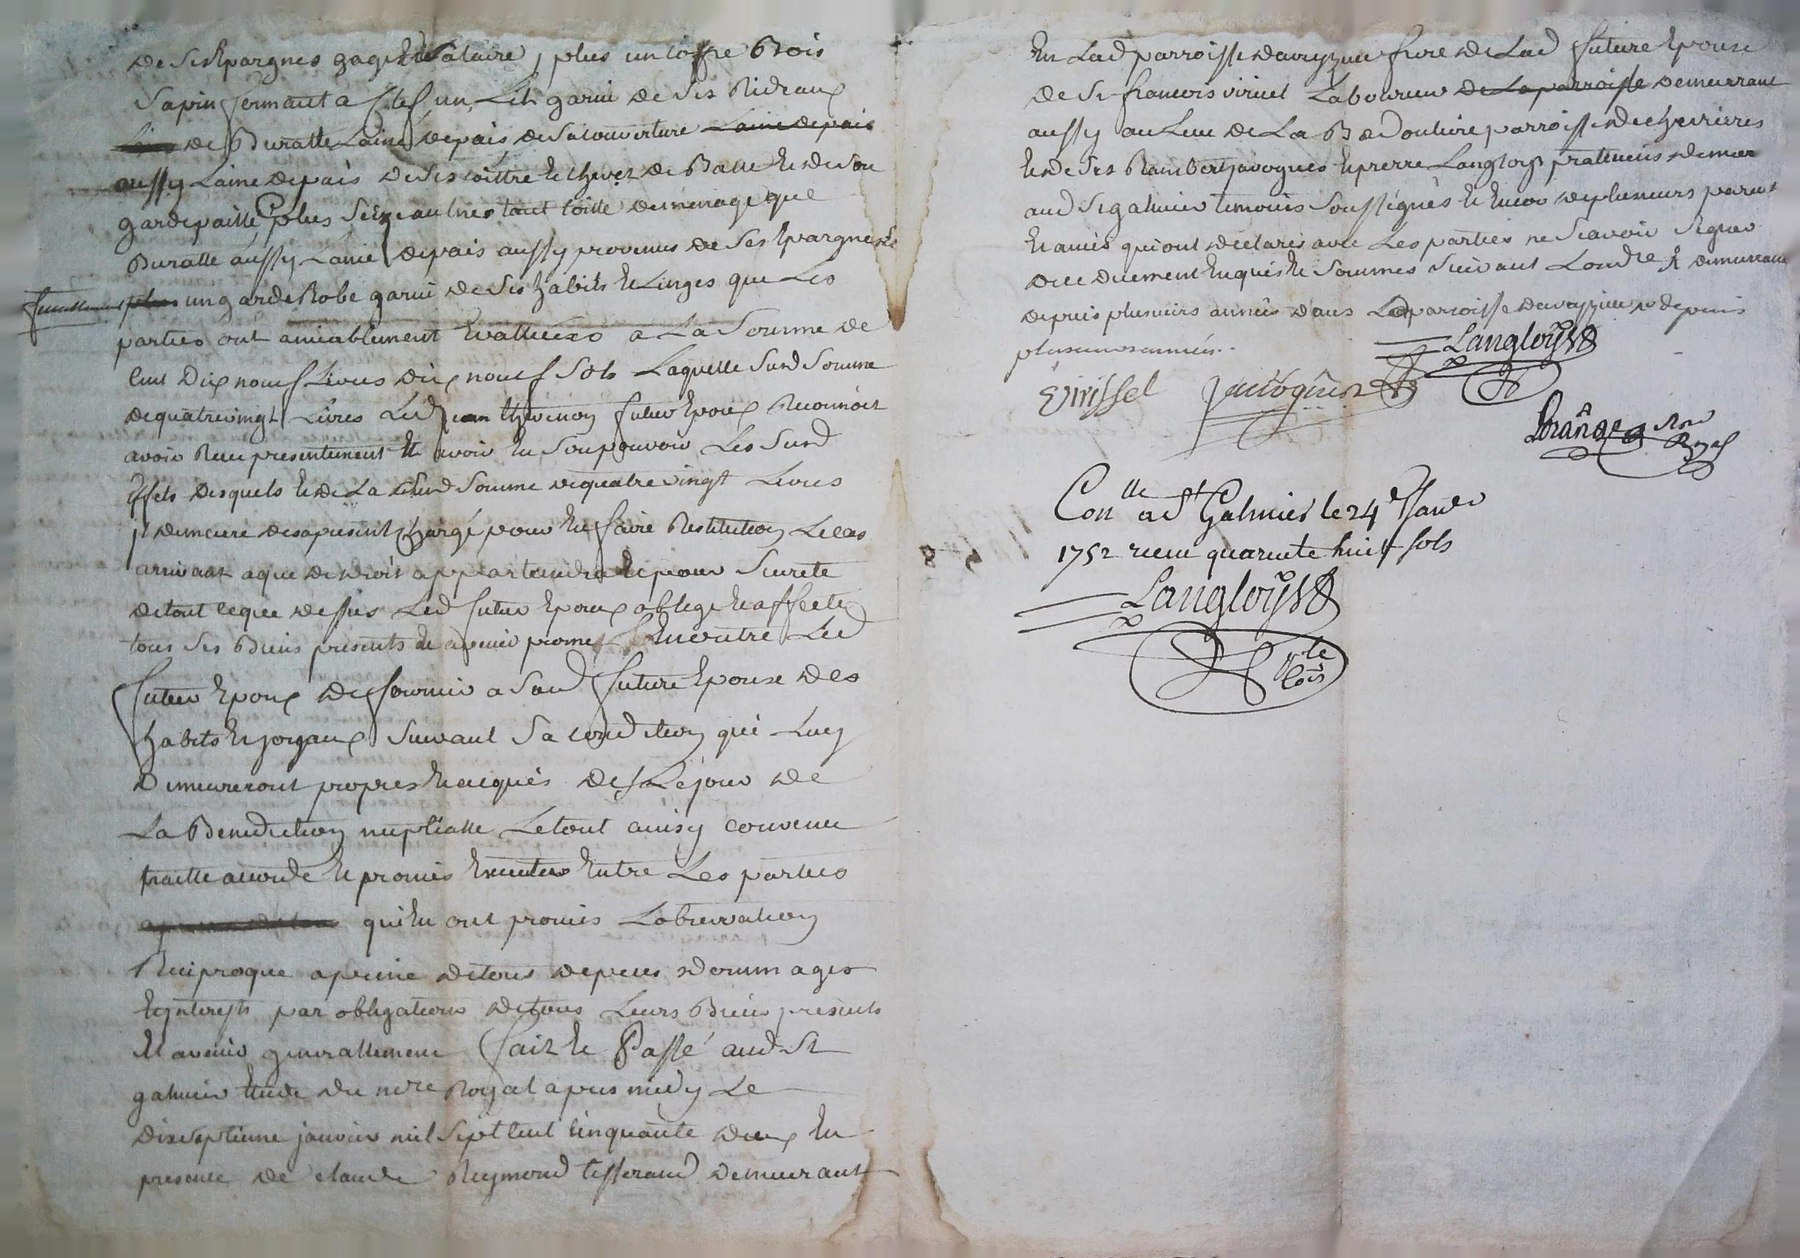 de ses Epargnes gages et salaire, plus un coffre Bois
sapin fermant a clef un Lit garni de ses Rideaux
de Buratte Laine depais de sa couverture Laine depais
aussy Laine depais de ses coittre et chevez de Balle et de son
gardepaille plus seize aulnes tant toille de menage que
Buratte aussy Laine depais aussy provenus de ses Epargnes et
plus un garderobe garni de ses habits et Linges que Les
parties ont amiablement Evalluées a La somme de
cent Dix neuf Livres dix neuf sols Laquelle susd somme
de quatrevingt Livres Led jean thevenon futur Epoux Reconnoit
avoir Receu presentement et avoir En son pouvoir Les susd
Effets desquels et de La susd somme de quatrevingt Livres
il demeure des apresent chargé pour En faire Restitution Le cas
arrivant a qui de droit appartiendra Et pour seureté
de tout ce que dessus Led futur Epoux oblige et affecte
tous ses Biens presents et avenir promet En outre Led
futur Epoux de fournir a sad future Epouse des
habits et joyaux suivant sa condition qui Luy
Demeureront propres et acquis des Le jour de
La Benediction nuptialle Le tout ainsy convenu
traitté accordé et promis Executer Entre Les parties
qui En ont promis L'observation
Reciproque a peine de tous depens dommages
et interests par obligations de tous Leurs Biens presents
Et avenir generallement fait et Passé aud St
galmier Etude du nore Royal apres midy Le
dixseptieme janvier mil sept cent cinquante deux En
presence de claude Reymond tisserand demeurant
En Lad parroisse daveyzieu frere de Lad future Epouse
de Sr francois viricel Laboureur de La parroisse demeurant
aussy au Lieu de La B parroisse de chevrieres
et de Srs Rambert javogues et pierre Langloys praticiens demeur
aud St galmier temoins soussignés et Encor de plusieurs parents
et amis qui ont declarés avec Les parties ne scavoir signer
de ce duement Enquis et sommés suivant Lordre & demeurant
depuis plusieurs années dans La parroisse daveyzieu & depuis
plusieurs années.
Langloys
Virissel Javogues
Pnore
Royal
Conlle a St Galmier le 24e Janvr
1752 receu quarente huit sols
Langloys